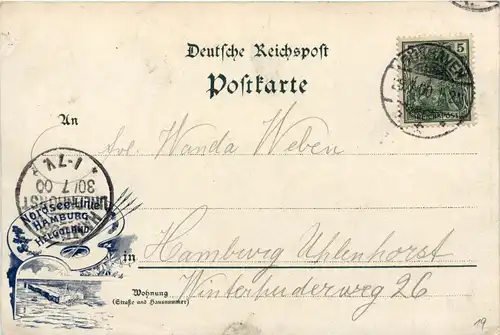 Deutsche Reichspost
Postkarte
5
An
Frl. Wanda Weber
1-7V.
30/7 00
Nordsee-Linie
HAMBURG
HELGOLAND.
in
Hamburg Uhlenhorst
Wohnung
(Straße und Hausnummer)
Winterhuderweg 26
19